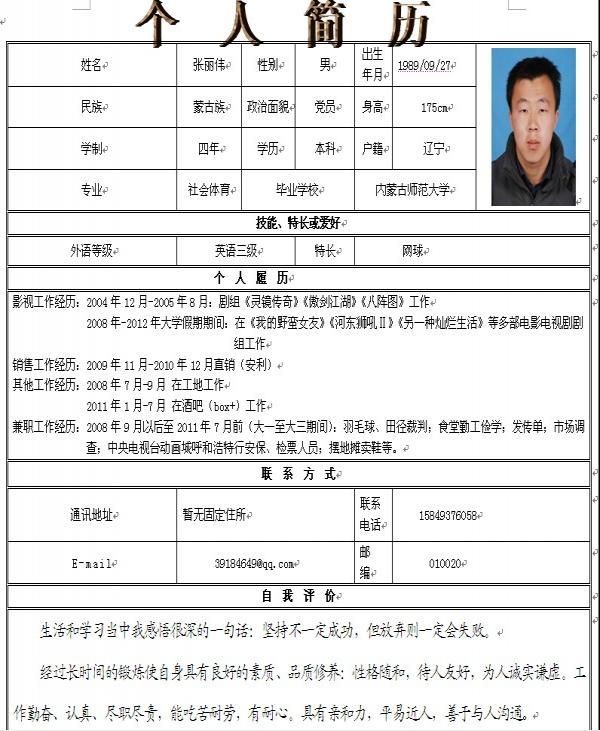 个 人 简 历
姓名 张丽伟 性别 男 出生年月 1989/09/27
民族 蒙古族 政治面貌 党员 身高 175cm
学制 四年 学历 本科 户籍 辽宁
专业 社会体育 毕业学校 内蒙古师范大学
技能、特长或爱好
外语等级 英语三级 特长 网球
个 人 履 历
影视工作经历：2004 年 12 月-2005 年 8 月：剧组《灵镜传奇》《傲剑江湖》《八阵图》工作
2008 年-2012 年大学假期期间：在《我的野蛮女友》《河东狮吼Ⅱ》《另一种灿烂生活》等多部电影电视剧剧
组工作
销售工作经历：2009 年 11 月-2010 年 12 月直销（安利）
其他工作经历：2008 年 7 月-9 月 在工地工作
2011 年 1 月-7 月 在酒吧（box+）工作
兼职工作经历：2008 年 9 月以后至 2011 年 7 月前（大一至大三期间）：羽毛球、田径裁判；食堂勤工俭学；发传单；市场调
查；中央电视台动画城呼和浩特行安保、检票人员；摆地摊卖鞋等。
联 系 方 式
通讯地址 暂无固定住所 联系电话 15849376058
E-mail 39184649@qq.com 邮编 010020
自 我 评 价
生活和学习当中我感悟很深的一句话：坚持不一定成功，但放弃则一定会失败。
经过长时间的锻炼使自身具有良好的素质、品质修养：性格随和，待人友好，为人诚实谦虚。工
作勤奋、认真、尽职尽责，能吃苦耐劳，有耐心。具有亲和力，平易近人，善于与人沟通。